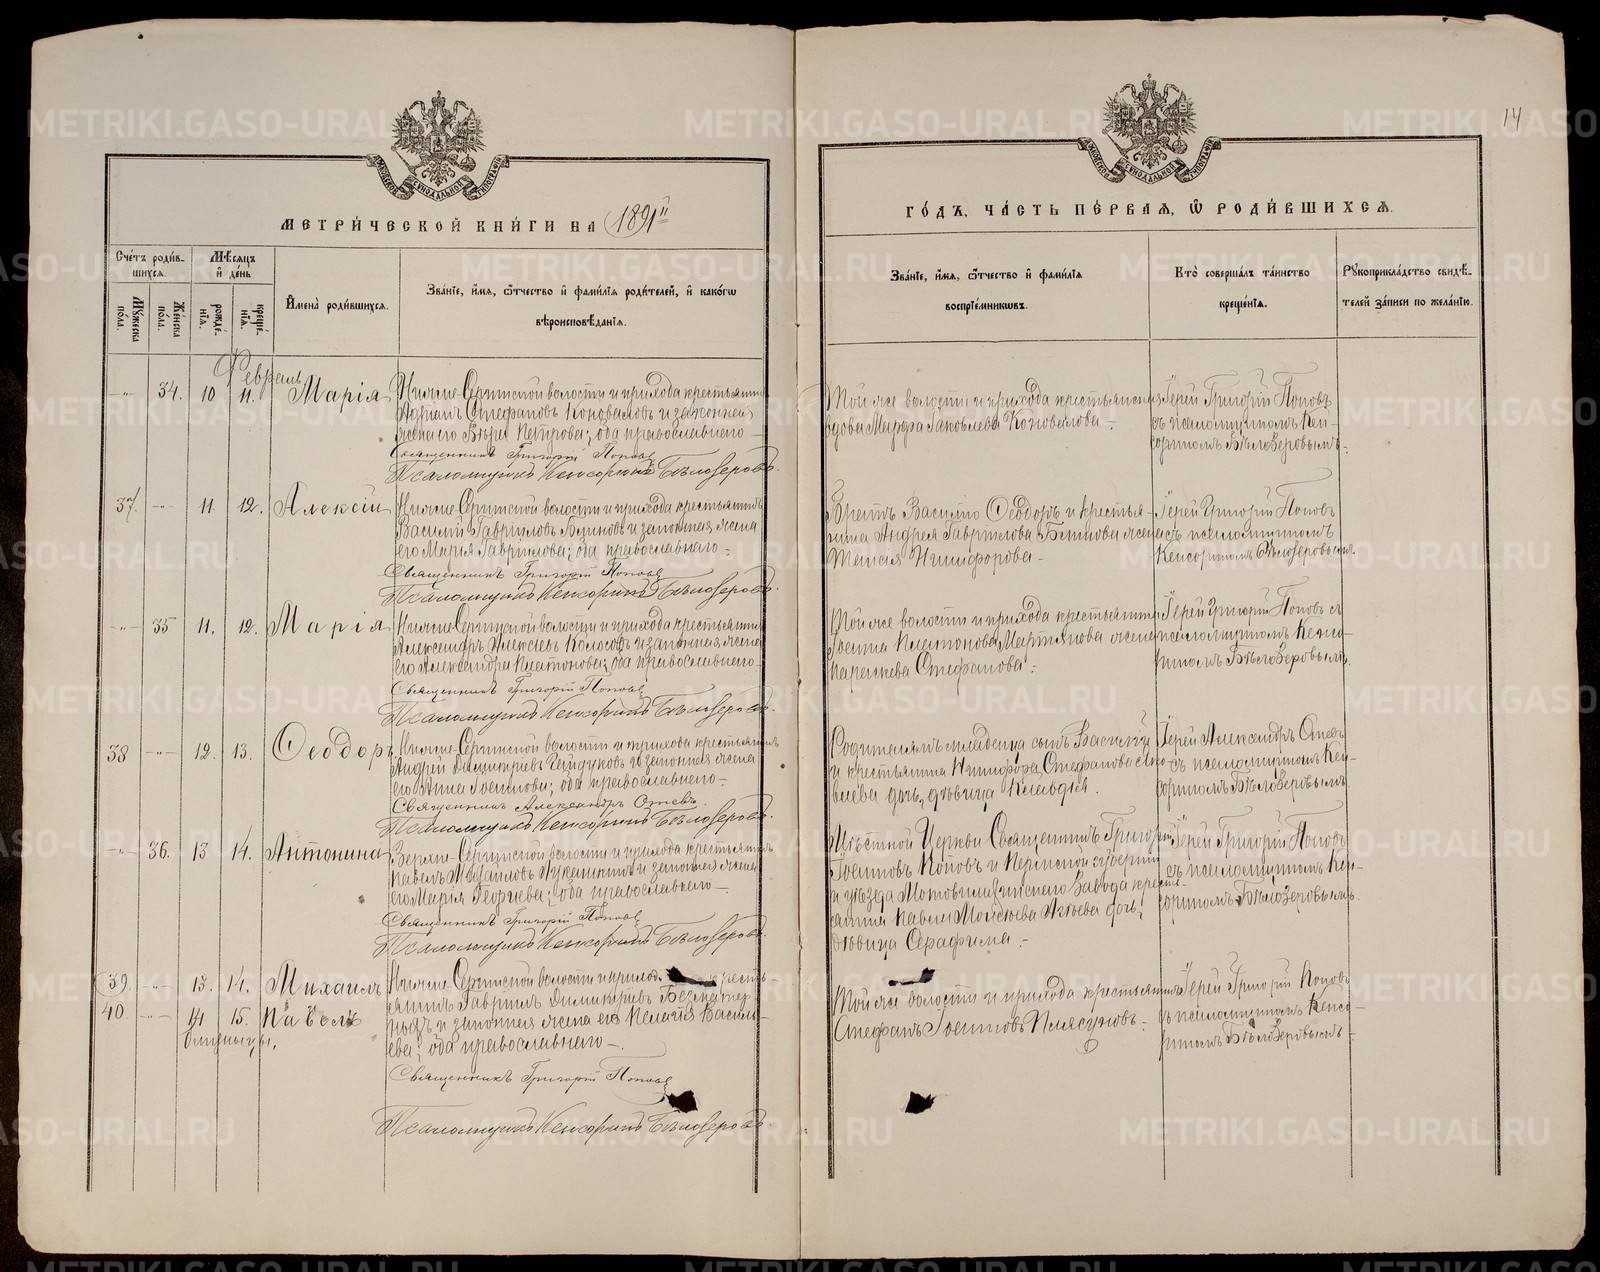 METRIKI.GASO-URAL.RU
14
МЕТРИ́ЧЕСКОЙ КНИ́ГИ НА 1891й
ГО́ДЪ, ЧА́СТЬ ПЕ́РВАЯ, Ѿ РОДИ́ВШИХСЯ.
Сче́тъ роди́в-
шихся.
Мѣ́сяцъ
и҆ де́нь
Му́жеска
по́ла.
Же́нска
по́ла.
рожде́-
нїя.
креще́-
нїя.
И҆мена̀ роди́вшихся.
Зва́нїе, и҆́мя, ѻ҆́тчество и҆ фами́лїя роди́телей, и҆ како́гѡ
вѣроисповѣ́данїя.
Зва́нїе, и҆́мя, ѻ҆́тчество и҆ фами́лїя
воспрїе́мникѡвъ.
Кто̀ соверша́лъ та́инство
креще́нїя.
Рꙋкоприкла́дство свидѣ́-
телей за́писи по жела́нїю.
Февраль
-„- 34. 10 11. Марія
Нижне-Сергинской волости и прихода крестьянинъ
Адріанъ Стефановъ Коноваловъ и законная
жена его Вѣра Петрова; оба православнаго
Священникъ Григорій Поповъ
Псаломщикъ Кенсоринъ Бѣлозеровъ.
Той же волости и прихода крестьянская
вдова Марѳа Яковлева Коновалова.
Іерей Григорій Поповъ
съ псаломщикомъ Кен-
сориномъ Бѣлозеровымъ.
37. -„- 11. 12. Алексій
Нижне-Сергинской волости и прихода крестьянинъ
Василій Гавриловъ Блиновъ и законная жена
его Марія Гаврилова; оба православнаго
Священникъ Григорій Поповъ
Псаломщикъ Кенсоринъ Бѣлозеровъ.
Ѳеодоръ и крестья-
нина Андрея Гаврилова Блинова жена
Никифорова
Іерей Григорій Поповъ
съ псаломщикомъ
Кенсориномъ Бѣлозеровымъ.
-„- 35 11. 12. Марія
Нижне-Сергинской волости и прихода крестьянинъ
Александръ Алексѣевъ и законная жена
его Александра Платонова; оба православнаго
Священникъ Григорій Поповъ
Псаломщикъ Кенсоринъ Бѣлозеровъ.
Той же волости и прихода крестьянина
Платонова Мартьянова жена
Стефанова.
Іерей Григорій Поповъ съ
псаломщикомъ Кенсо-
риномъ Бѣлозеровымъ.
38 -„- 12. 13. Ѳеодоръ
Нижне-Сергинской волости и прихода крестьянинъ
Андрей Димитріевъ и законная жена
его Анна; оба православнаго
Священникъ Александръ
Псаломщикъ Кенсоринъ Бѣлозеровъ.
Родителямъ младенца сынъ Василій
и крестьянина Никифора Стефанова
дочь, дѣвица Клавдія.
Іерей Александръ
съ псаломщикомъ Кен-
сориномъ Бѣлозеровымъ
-„- 36. 13 14. Антонина
Верхне-Сергинской волости и прихода крестьянинъ
Павелъ Михаиловъ и законная жена
его Марія Георгіева; оба православнаго
Священникъ Григорій Поповъ
Псаломщикъ Кенсоринъ Бѣлозеровъ.
Мѣстной Церкви Священникъ Григорій
Іоанновъ Поповъ и Пермской губерніи
и уѣзда Мотовилихинскаго Завода крест-
Павла Моисеева дочь,
дѣвица Серафима.
Іерей Григорій Поповъ
съ псаломщикомъ Кен-
сориномъ Бѣлозеровымъ.
39. -„- 13. 14. Михаилъ
40. -„- 14 15. Павелъ
близнецы.
Нижне-Сергинской волости и прихода крестъ-
янинъ Гавріилъ Димитріевъ Безматер-
ныхъ и законная жена его Пелагія Василь-
ева; оба православнаго
Священникъ Григорій Поповъ
Псаломщикъ Кенсоринъ Бѣлозеровъ
Той же волости и прихода крестьянинъ
Стефанъ Іоанновъ Плясуновъ.
Іерей Григорій Поповъ
съ псаломщикомъ Кенсо-
риномъ Бѣлозеровымъ